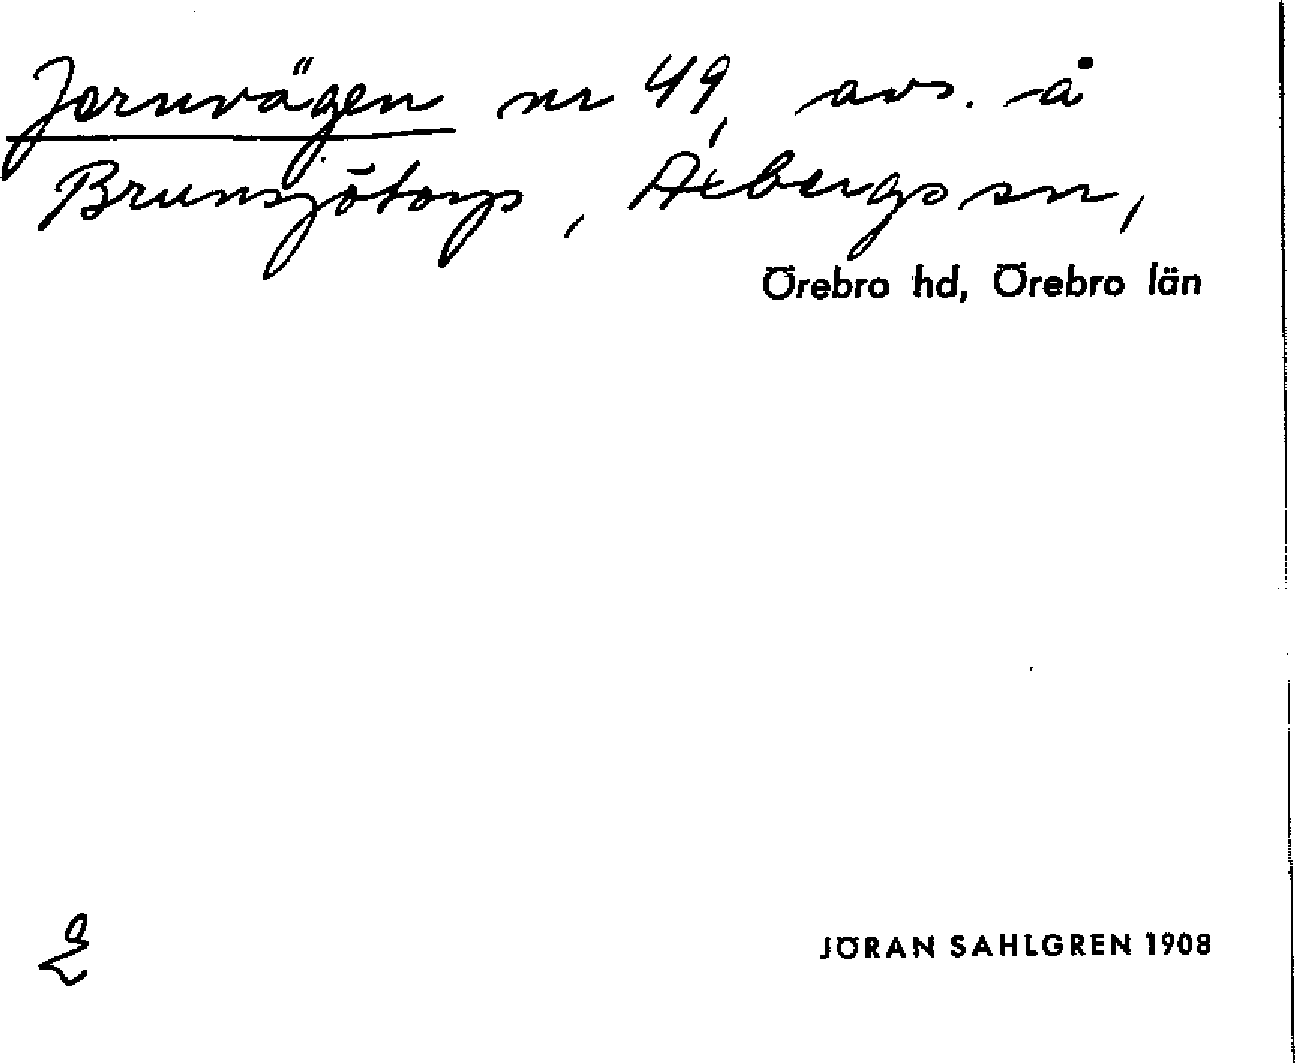 Jarnvägen nr 49, avs. å
Brunsjötorp, Axbergs sn,
Örebro hd, Örebro län
JÖRAN SAHLGREN 1908